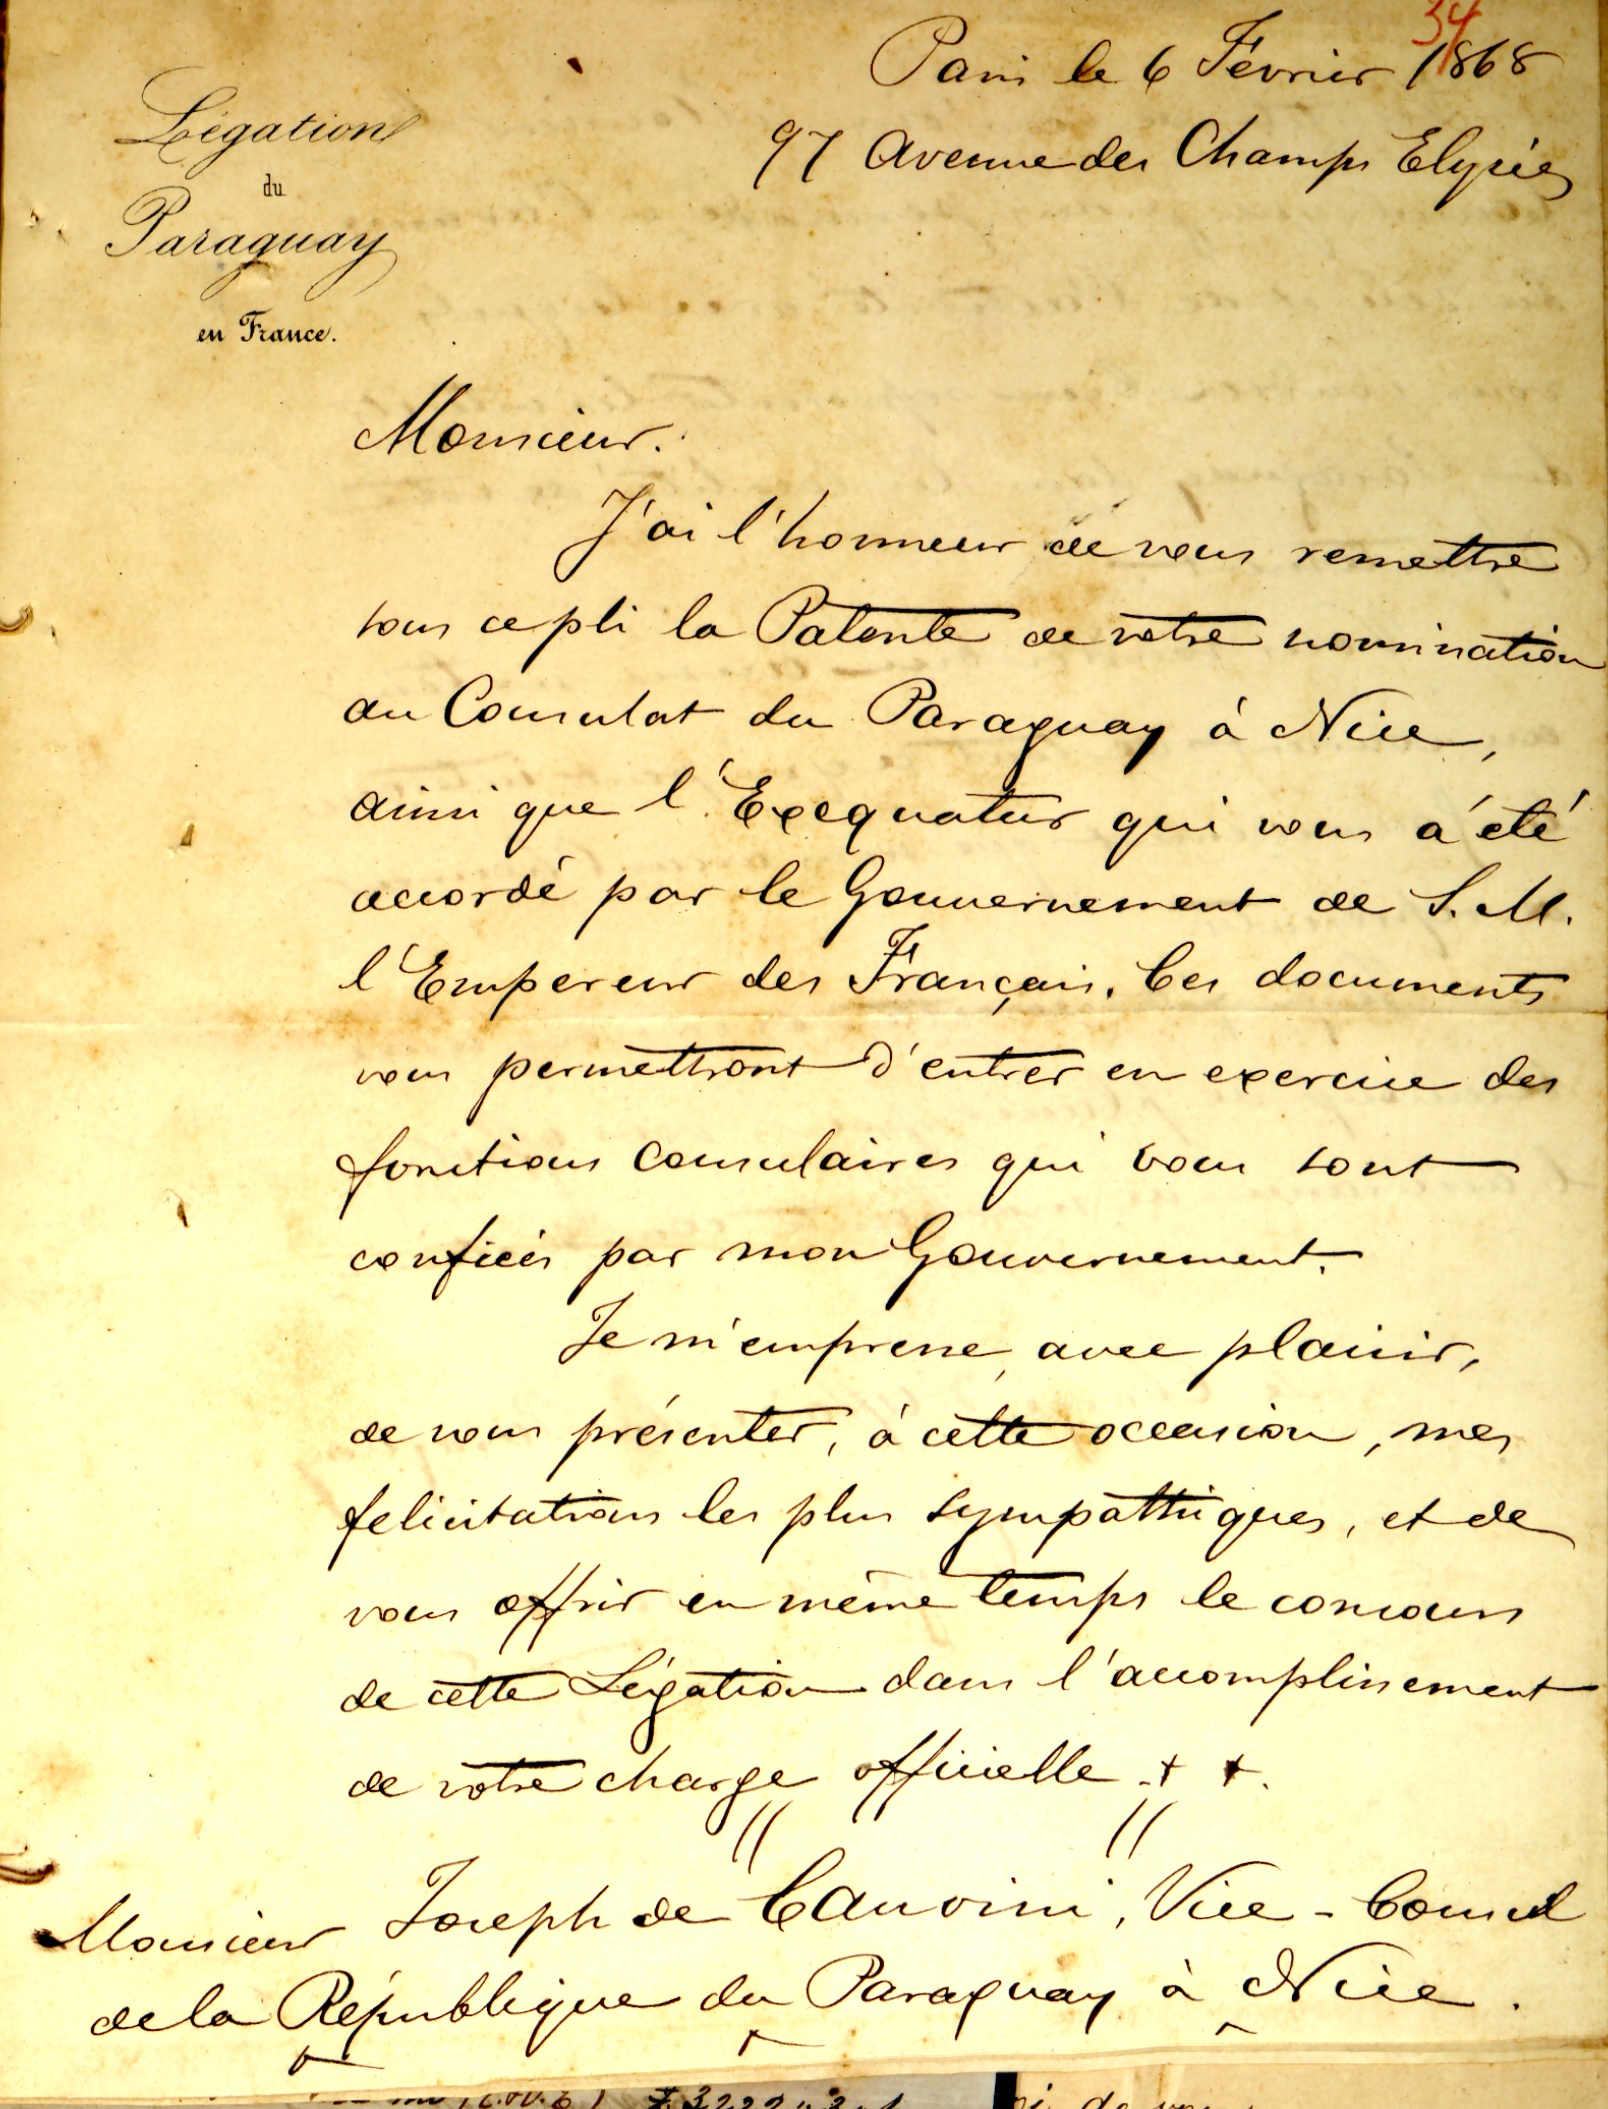 34
Paris le 6 Février 1868
97 Avenue des Champs Elysées
Légation
du
Paraguay
en France.
Monsieur.
J'ai l'honneur de vous remettre
sous ce pli la Patente de votre nomination
au Consulat du Paraguay à Nice,
ainsi que l'Exequatur qui vous a été
accordé par le Gouvernement de S. M.
l'Empereur des Français. Ces documents
vous permettront d'entrer en exercice des
fonctions consulaires qui vous sont
confiées par mon Gouvernement.
Je m'empresse, avec plaisir,
de vous présenter, à cette occasion, mes
felicitations les plus sympathiques, et de
vous offrir en même temps le concours
de cette Légation dans l'accomplissement
de votre charge officielle . + +.
Monsieur Joseph de Cauvini, Vice-Consul
de la République du Paraguay à Nice.